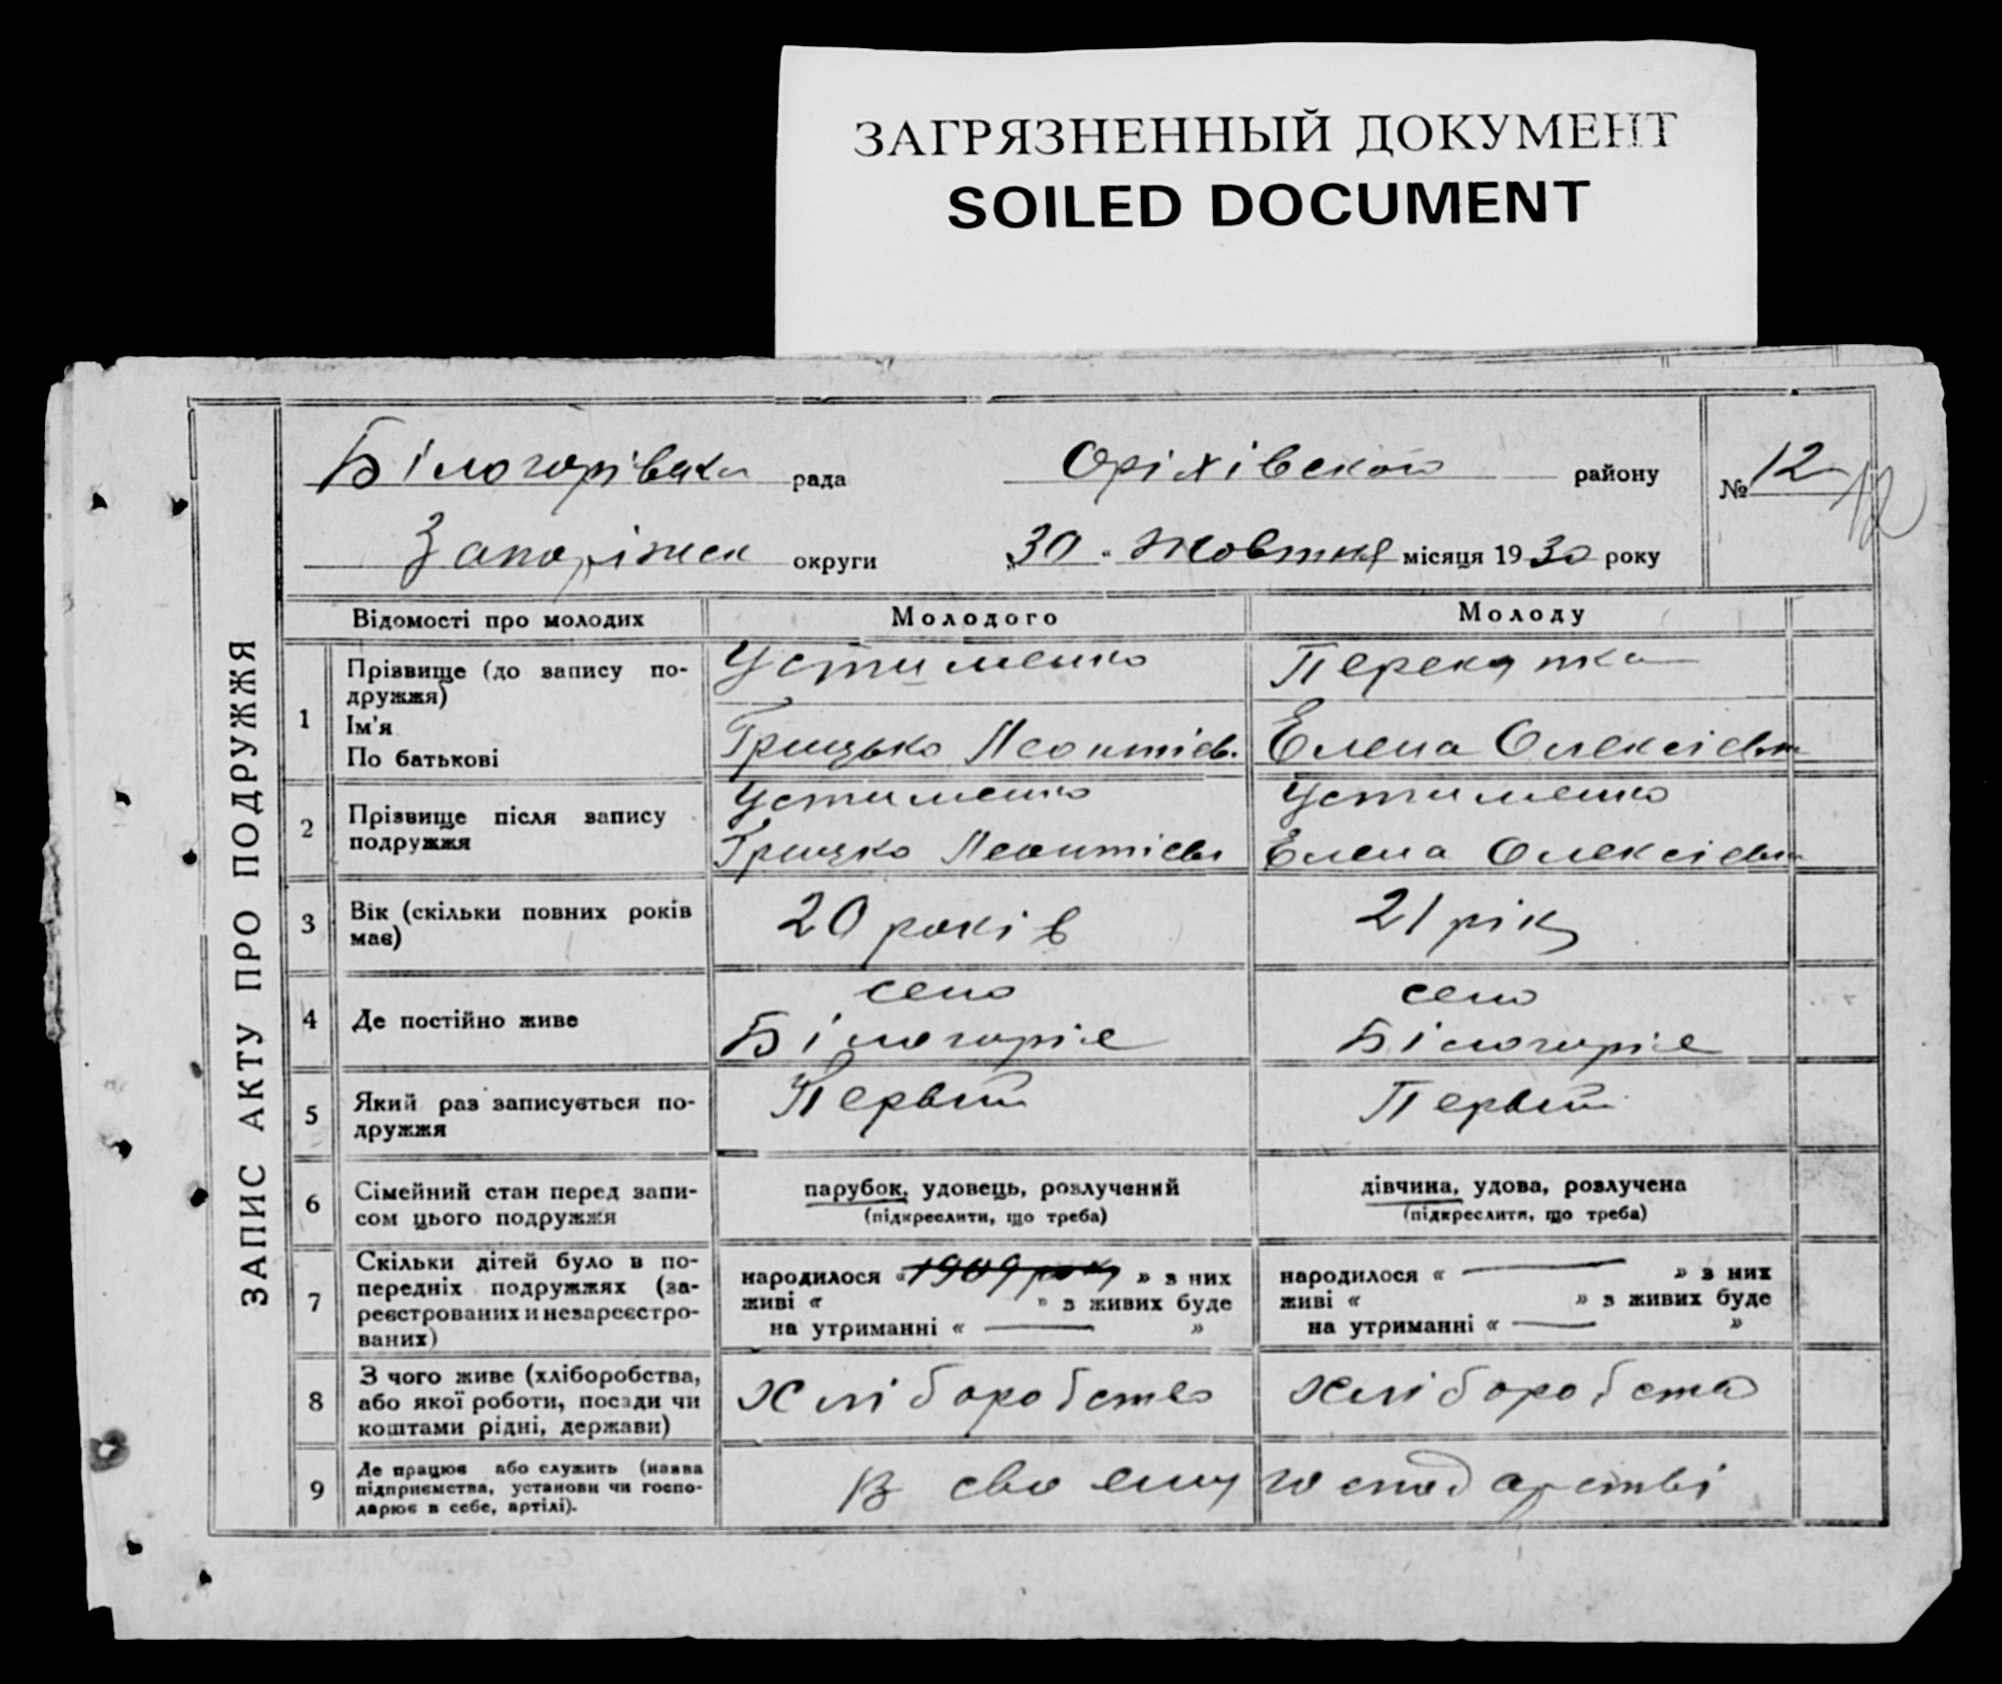 ЗАГРЯЗНЕННЫЙ ДОКУМЕНТ
SOILED DOCUMENT
ЗАПИС АКТУ ПРО ПОДРУЖЖЯ
рада Оріхівского району № 12 12
Запоріжск округи „30“ Жовтня місяця 1930 року
Відомості про молодих Молодого Молоду
1 Прізвище (до запису по-
дружжя)
Ім'я
По батькові
Устименко
Грицько Леонтієв.
Елена Олексієвн
2 Прізвище після запису
подружжя
Устименко
Грицко Леонтієв
Устименко
Елена Олексієвн
3 Вік (скільки повних років
має)
20 років
21 рік
4 Де постійно живе
село
Білогоріє
село
Білогоріє
5 Який раз записується по-
дружжя
Первий
Первий
6 Сімейний стан перед запи-
сом цього подружжя
парубок, удовець, розлучений
(підкреслити, що треба)
дівчина, удова, розлучена
(підкреслити, що треба)
7 Скільки дітей було в по-
передніх подружжях (за-
реєстрованих и незареєстро-
ваних)
народилося « 1909 року » з них
живі « » з живих буде
на утриманні « — »
народилося « — » з них
живі « » з живих буде
на утриманні « — »
8 З чого живе (хліборобства,
або якої роботи, посади чи
коштами рідні, держави)
Хліборобство
Хліборобства
9 Де працює або служить (назва
підприємства, установи чи госпо-
дарює в себе, артілі).
В своему господарстві